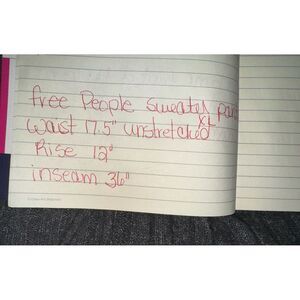 free People Sweater pan
XL
waist 17.5" unstretched
Rise 12"
inseam 36"